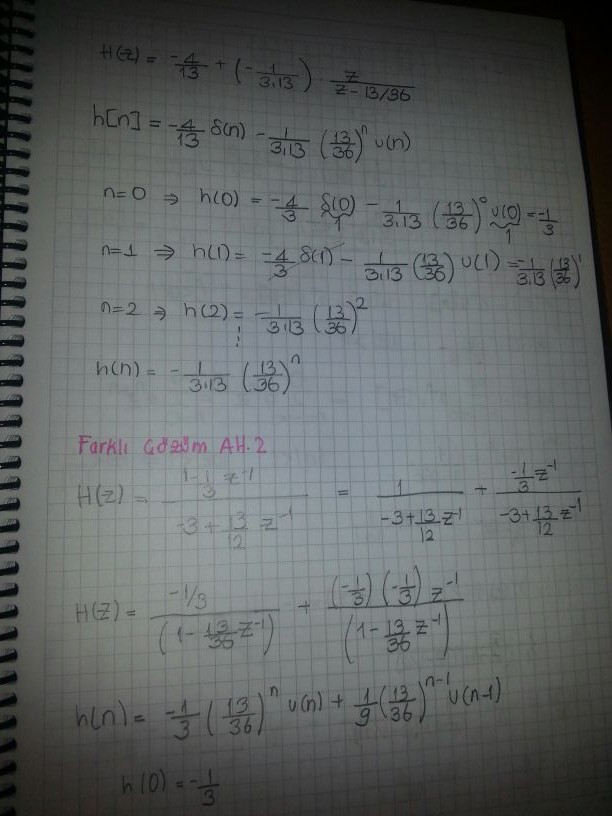 H(z) = -4/13 + (-1/3.13) . z/(z-13/36)
h[n] = -4/13 δ(n) - 1/3.13 (13/36)^n u(n)
n=0 ⇒ h(0) = -4/3 δ(0) - 1/3.13 (13/36)^0 u(0) = -1/3
1 1
n=1 ⇒ h(1) = -4/3 δ(1) - 1/3.13 (13/36) u(1) = -1/3.13 (13/36)^1
n=2 ⇒ h(2) = -1/3.13 (13/36)^2
h(n) = -1/3.13 (13/36)^n
Farklı Çözüm AH.2
H(z) = (1 - 1/3 z^-1)/(-3 + 13/12 z^-1) = 1/(-3 + 13/12 z^-1) + (-1/3 z^-1)/(-3 + 13/12 z^-1)
H(z) = (-1/3)/(1 - 13/36 z^-1) + ((-1/3)(-1/3) z^-1)/(1 - 13/36 z^-1)
h(n) = -1/3 (13/36)^n u(n) + 1/9 (13/36)^n-1 u(n-1)
h(0) = -1/3